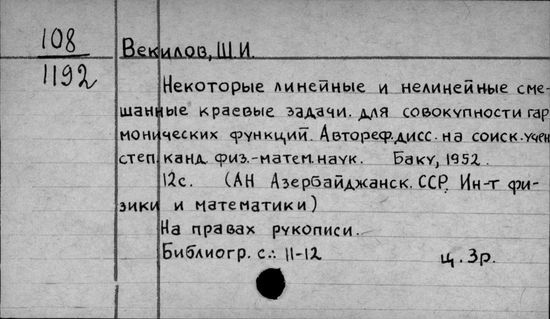 108
1192
Векилов, Ш.И.
Некоторые линейные и нелинейные сме-
шанные краевые задачи для совокупности гар
монических функций. Автореф.дисс. на соиск.учен
степ.канд. физ.-матем.наук. Баку, 1952.
12с. (АН Азербайджанск. ССР. Ин-т фи-
зики и математики)
На правах рукописи.
Библиогр. с.: 11-12
ц. 3р.